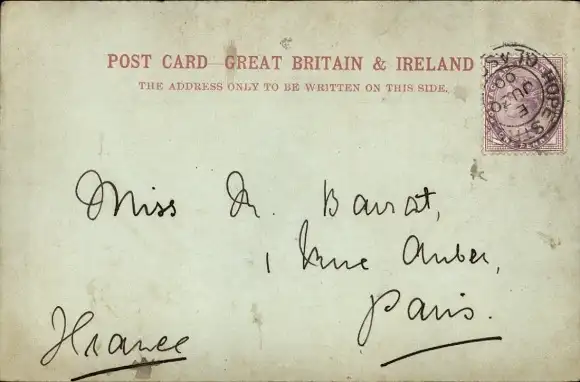 POST CARD GREAT BRITAIN & IRELAND
THE ADDRESS ONLY TO BE WRITTEN ON THIS SIDE.
HOPE ST
JU
99
E
Miss M. Barrat,
1 Rue Auber,
Paris.
France